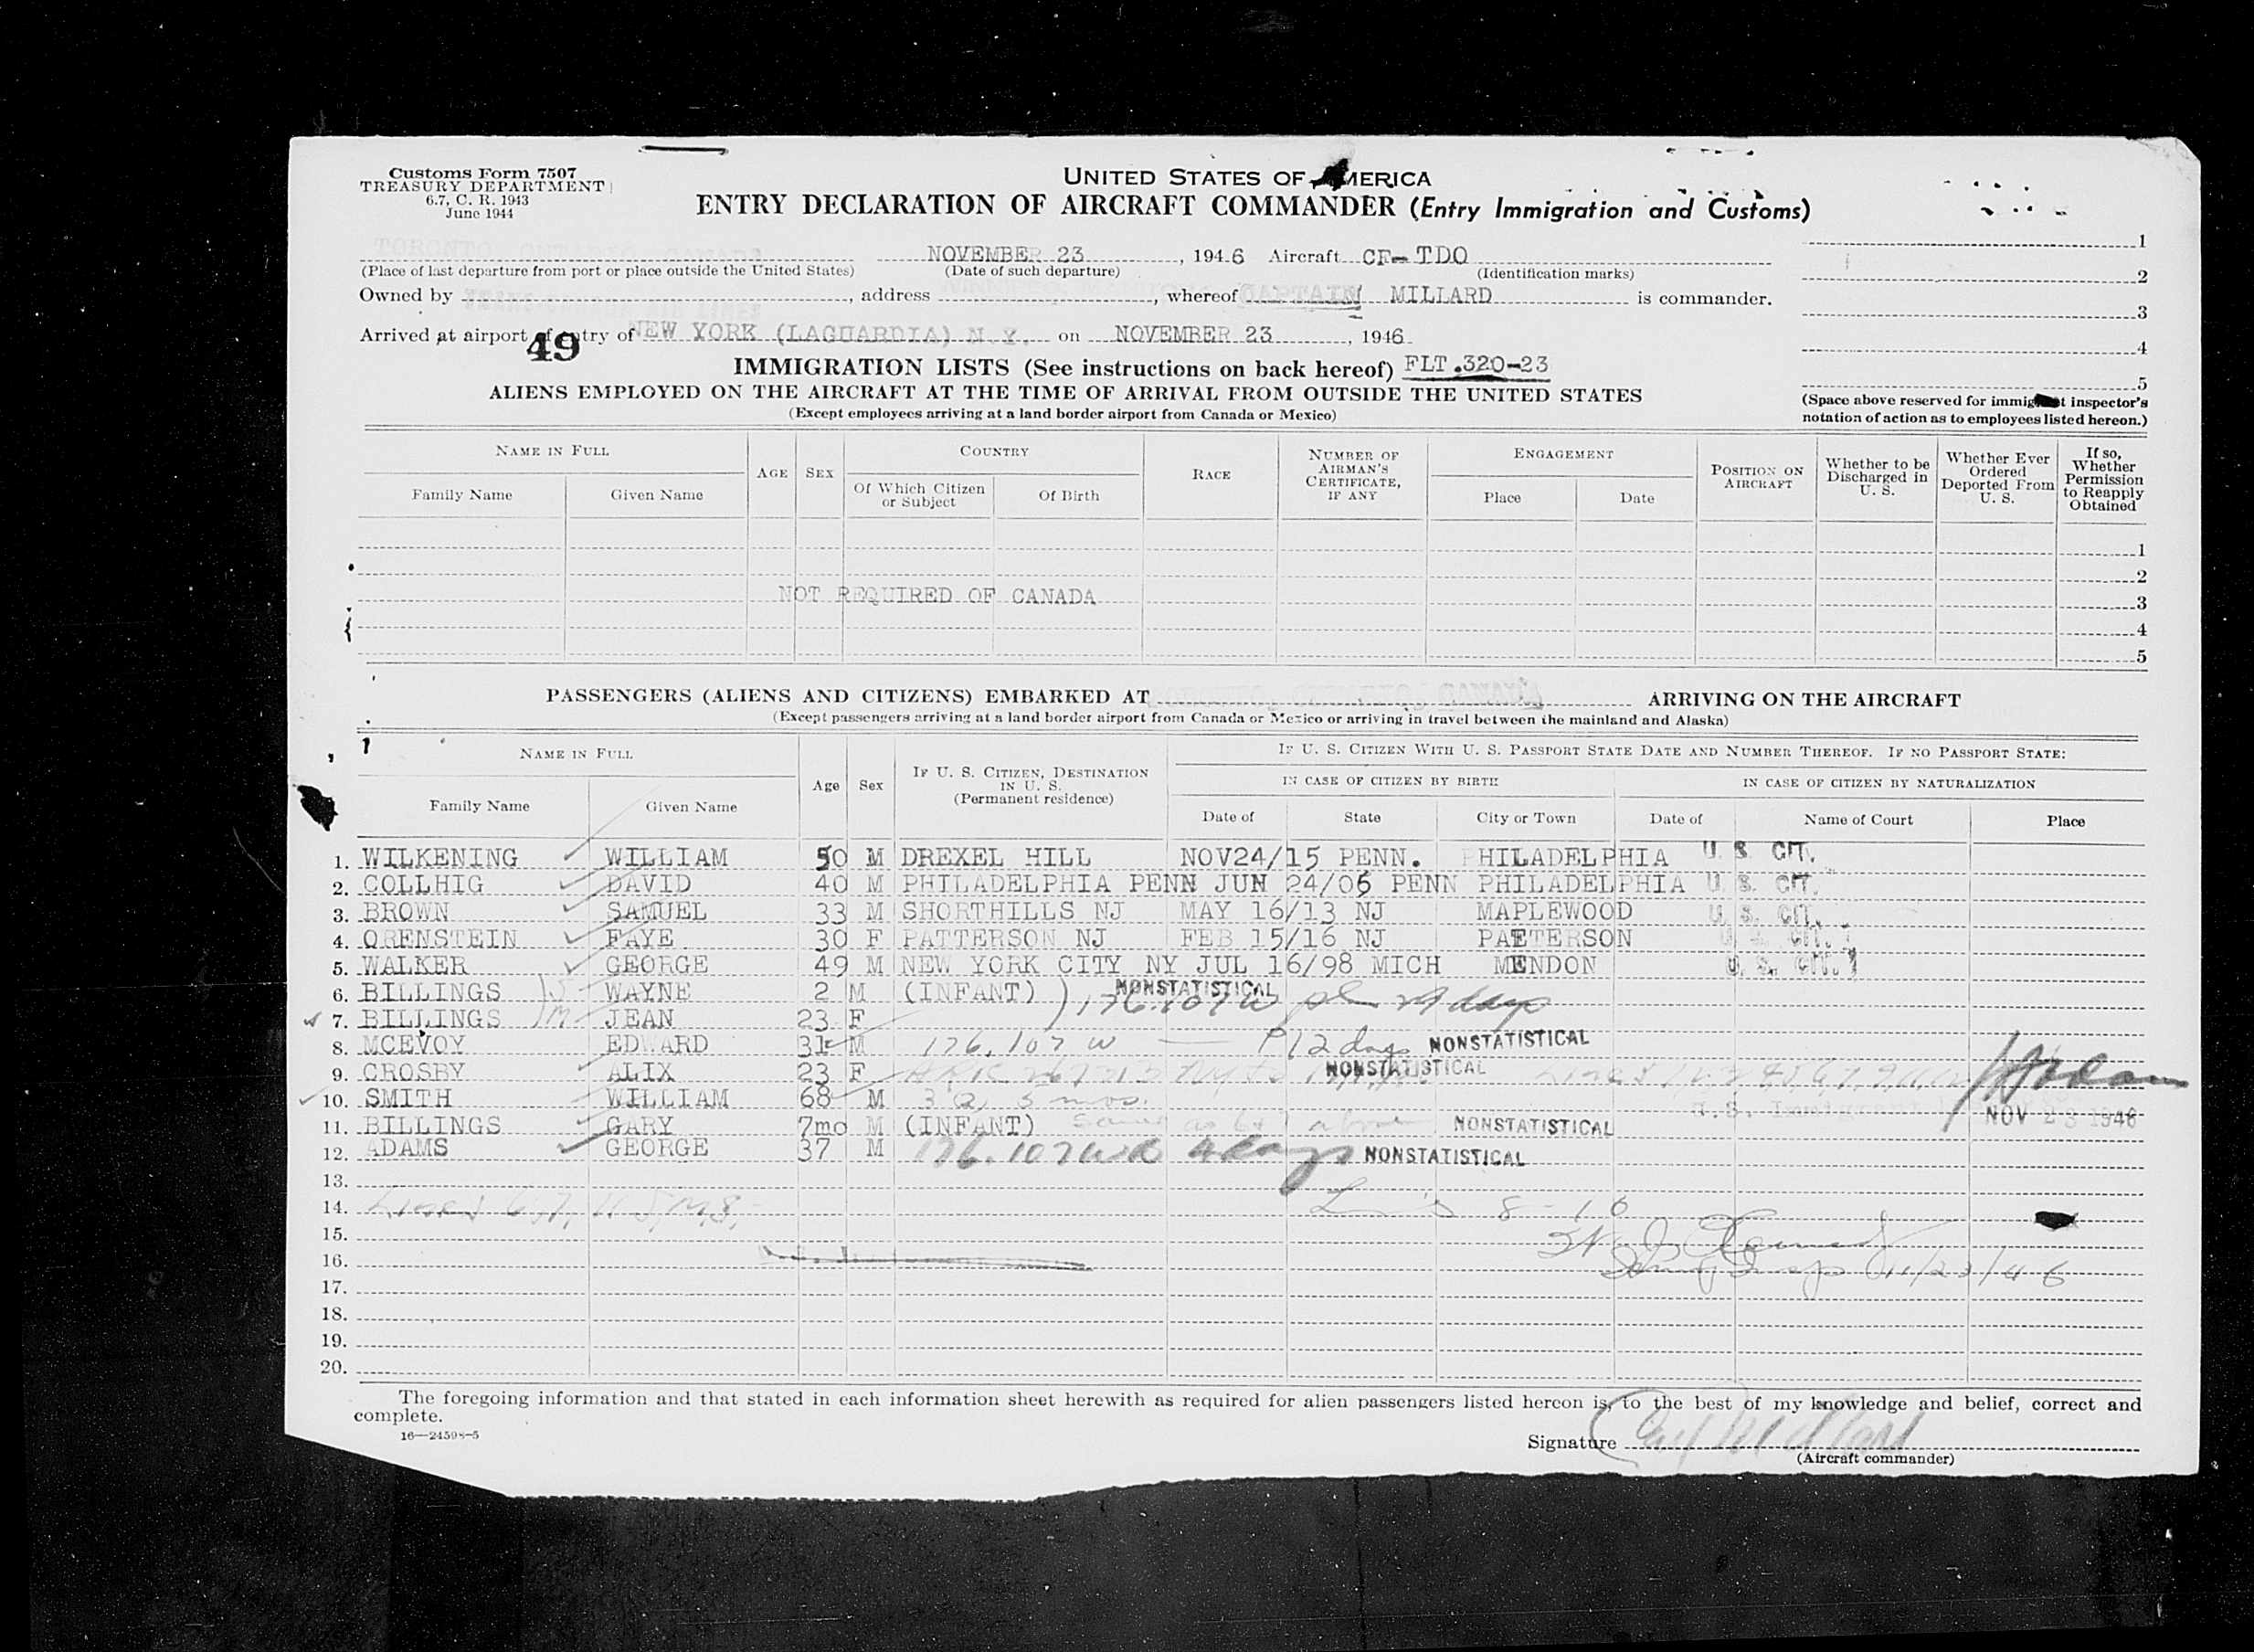 Customs Form 7507
TREASURY DEPARTMENT
6.7, C. R. 1943
June 1944
UNITED STATES OF AMERICA
ENTRY DECLARATION OF AIRCRAFT COMMANDER (Entry Immigration and Customs)
TORONTO ONTARIO CANADA NOVEMBER 23, 1946 Aircraft CF-TDO
(Place of last departure from port or place outside the United States) (Date of such departure) (Identification marks)
Owned by , address , whereof CAPTAIN MILLARD is commander.
Arrived at airport of entry of NEW YORK (LAGUARDIA) N.Y. on NOVEMBER 23, 1946
49
IMMIGRATION LISTS (See instructions on back hereof) FLT.320-23
ALIENS EMPLOYED ON THE AIRCRAFT AT THE TIME OF ARRIVAL FROM OUTSIDE THE UNITED STATES
(Except employees arriving at a land border airport from Canada or Mexico)
1
2
3
4
5
(Space above reserved for immigrant inspector's
notation of action as to employees listed hereon.)
NAME IN FULL
Family Name Given Name
AGE SEX
COUNTRY
Of Which Citizen or Subject Of Birth
RACE
NUMBER OF AIRMAN'S CERTIFICATE, IF ANY
ENGAGEMENT
Place Date
POSITION ON AIRCRAFT
Whether to be Discharged in U. S.
Whether Ever Ordered Deported From U. S.
If so, Whether Permission to Reapply Obtained
1
2
NOT REQUIRED OF CANADA 3
4
5
PASSENGERS (ALIENS AND CITIZENS) EMBARKED AT ARRIVING ON THE AIRCRAFT
(Except passengers arriving at a land border airport from Canada or Mexico or arriving in travel between the mainland and Alaska)
NAME IN FULL
Family Name Given Name
Age Sex
IF U. S. CITIZEN, DESTINATION IN U. S.
(Permanent residence)
IF U. S. CITIZEN WITH U. S. PASSPORT STATE DATE AND NUMBER THEREOF. IF NO PASSPORT STATE:
IN CASE OF CITIZEN BY BIRTH IN CASE OF CITIZEN BY NATURALIZATION
Date of State City or Town Date of Name of Court Place
1. WILKENING WILLIAM 50 M DREXEL HILL NOV24/15 PENN. PHILADELPHIA U. S. CIT.
2. COLLHIG DAVID 40 M PHILADELPHIA PENN JUN 24/06 PENN PHILADELPHIA U. S. CIT.
3. BROWN SAMUEL 33 M SHORTHILLS NJ MAY 16/13 NJ MAPLEWOOD U. S. CIT.
4. ORENSTEIN FAYE 30 F PATTERSON NJ FEB 15/16 NJ PAETERSON U. S. CIT.
5. WALKER GEORGE 49 M NEW YORK CITY NY JUL 16/98 MICH MENDON U. S. CIT.
6. BILLINGS WAYNE 2 M (INFANT) NONSTATISTICAL
7. BILLINGS JEAN 23 F 176.107W days
8. MCEVOY EDWARD 31 M 176.107 W P 12 days NONSTATISTICAL
9. CROSBY ALIX 23 F NONSTATISTICAL
10. SMITH WILLIAM 68 M 3(2) 3 mos.
11. BILLINGS GARY 7mo M (INFANT) Same as above NONSTATISTICAL NOV 23 1946
12. ADAMS GEORGE 37 M 176.107 days NONSTATISTICAL
13.
14. Lines 6, 7, 11 8-10
15.
16. 11/23/46
17.
18.
19.
20.
The foregoing information and that stated in each information sheet herewith as required for alien passengers listed hereon is, to the best of my knowledge and belief, correct and
complete.
16—24598-5
Signature Millard
(Aircraft commander)